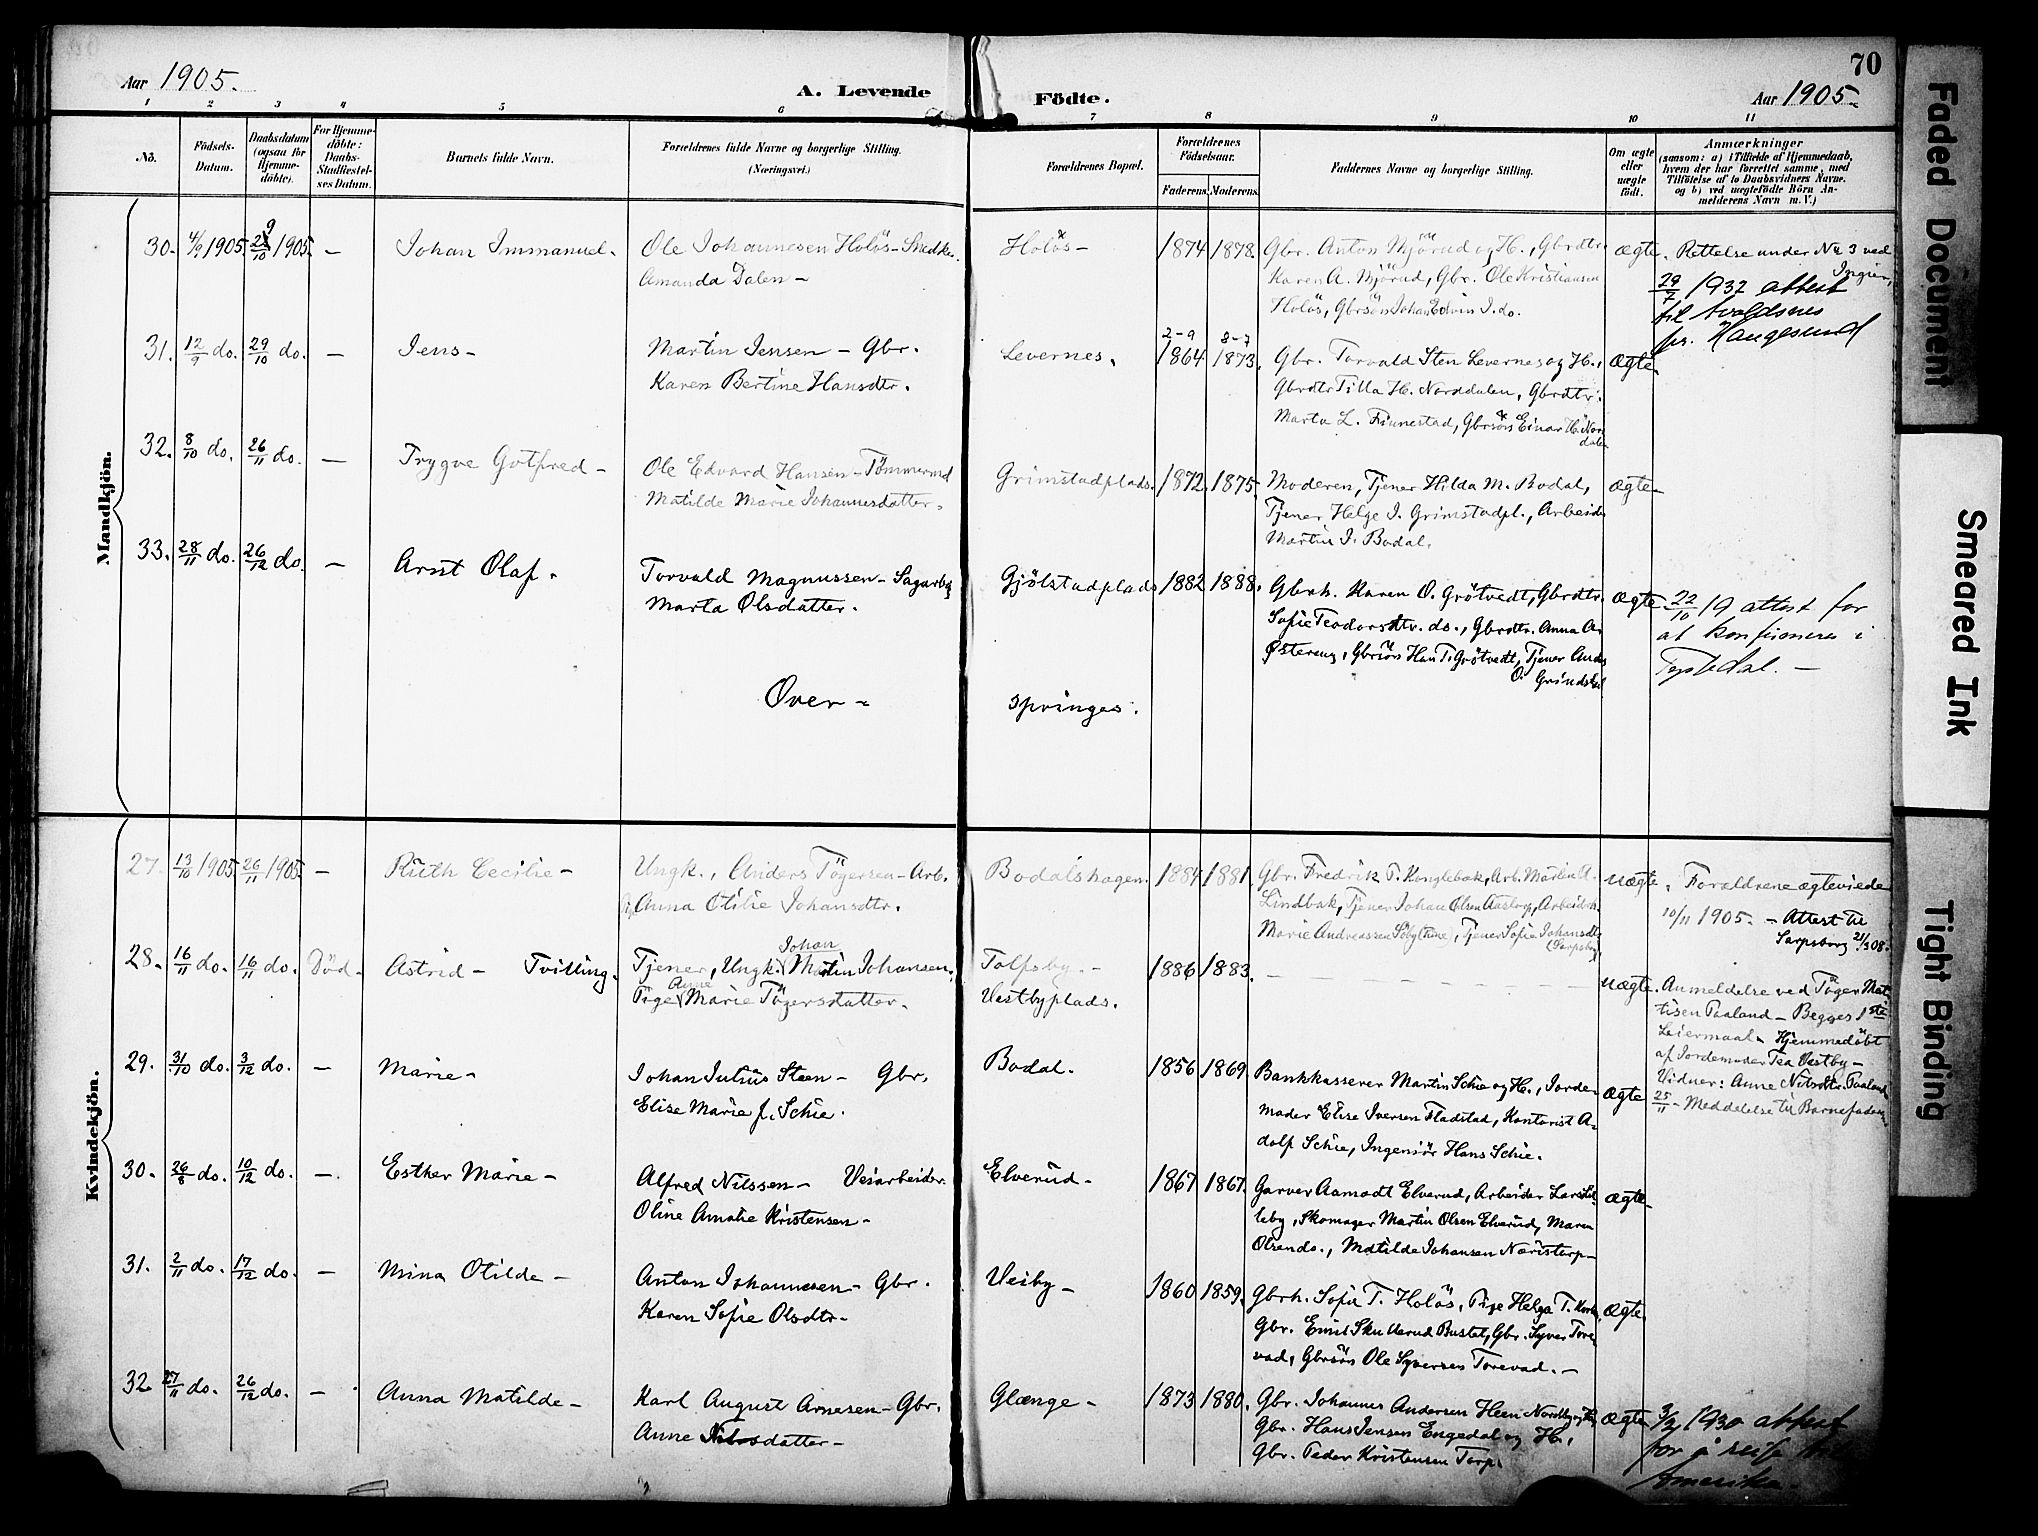 Aar 1905.
A. Levende
Födte.
70
Aar 1905
1 2 3 4 5 6 7 8 9 10 11
No.
Födsels-Datum.
Daabsdatum (ogsaa for Hjemme-döbte).
For Hjemme-döbte: Daabs-Stadfæstel-ses Datum.
Barnets fulde Navn.
Forældrenes fulde Navne og borgerlige Stilling. (Næringsvei.)
Forældrenes Bopæl.
Forældrenes Födselsaar.
Faderens. Moderens.
Faddernes Navne og borgerlige Stilling.
Om ægte eller uægte födt.
Anmærkninger
(saasom: a) i Tilfælde af Hjemmedaab, hvem der har forrettet samme, med Tilföielse af to Daabsvidners Navne, og b) ved uægtefödte Börn An-melderens Navn m. V.)
Mandkjön.
30. 4/9 1905. 29/10 1905. — Johan Immanuel. Ole Johannesen Holös - Snedker. Holös - 1874 1878. Gbr. Anton Mjörud og H., Gbrdtr. ægte. Rettelse under No 3 ved
Amanda Dalen - Karen A. Mjörud, Gbr. Ole Kristiansen
Holös, Gbrsön Johan Edvin I. do.
29/7 1932 attest
til Avaldsnes
pr. Haugesund
2-9 8-7
31. 12/9 do. 29/10 do. — Jens - Martin Jensen - Gbr. Levernes. 1864 1873. Gbr. Torvald Sten Levernes og H., ægte.
Karen Bertine Hansdtr. Gbrdtr. Tilla H. Norddalen, Gbrdtr.
Marta L. Finnestad, Gbrsön Einar H. Nord
dalen
32. 8/10 do. 26/11 do. — Trygve Gotfred - Ole Edvard Hansen - Tömmermd Grimstadplads. 1872. 1875. Moderen, Tjener Hilda M. Bodal, ægte -
Matilde Marie Johannesdatter. Tjener Helge J. Grimstadpl., Arbeider
Martin J. Bodal.
33. 28/11 do. 26/12 do. — Arnt Olaf. Torvald Magnussen - Sagarb. Gjölstadplads 1882 1888. Gbrk. Karen O. Grötvedt, Gbrdtr. ægte - 22/10 19 attest for
Marta Olsdatter. Sofie Teodorsdtr. do., Gbrdtr. Anna A. at konfirmeres i
Østereng, Gbrsön Han T. Grötvedt, Tjener Anders Tysledal. -
O. Grindstad
Over - springes.
Kvindekjön.
27. 13/10 1905 26/11 1905 — Ruth Cecilie - Ungk., Anders Tögersen - Arb. Bodalshagen. 1884 1881. Gbr. Fredrik T. Konglebak, Arb. Martin A. uægte. Foraldrene ægteviede
Anna Otilie Johansdtr. Lindbak, Tjener Johan Olsen Aastorp, Arbeidsk. 10/11 1905. - Attest til
Marie Andreassen Söby, Tjener Sofie Johansdtr (Sarpsborg) Sarpsborg 21/3 08.
28. 16/11 do. 16/11 do. Död. Astrid - Tvilling. Tjener, Ungk. Johan Martin Johansen, Tolfsby. - 1886 1883. — uægte. Anmeldelse ved Töger Mat-
Pige Anne Marie Tögersdatter. Vestbyplads. tisen Paaland - Begges 1ste
Leiermaal - Hjemmedöbt
af Jordemoder Tea Vestby -
Vidner: Anne Nilsdtr. Paaland
25/11 - Meddelelse til Barnefaderen
29. 31/10 do. 3/12 do. — Marie - Johan Julius Steen - Gbr. Bodal. 1856 1869. Bankkasserer Martin Schie og H., Jorde- ægte
Elise Marie f. Schie. moder Elise Iversen Fladstad, Kontorist A-
dolf Schie, Ingeniör Hans Schie.
30. 26/8 do. 10/12 do. — Esther Marie - Alfred Nilssen - Veiarbeider. Elverud - 1867 1867. Garver Aamodt Elverud, Arbeider Lars Lil- ægte.
Oline Amalie Kristensen - leby, Skomager Martin Olsen Elverud, Maren
Olsen do., Matilde Johansen Naristorp -
31. 2/11 do. 17/12 do. — Mina Otilde - Anton Johannesen - Gbr. Veiby - 1860 1859. Gbrk. Sofie T. Holös, Pige Helga T. ægte.
Karen Sofie Olsdtr. Gbr. Emil Skullerud Bustet, Gbr. Syver Tore-
vad, Gbrsön Ole Syversen Torevad. -
32. 27/11 do. 26/12 do. — Anna Matilde - Karl August Arnesen - Gbr. Glænge - 1873 1880. Gbr. Johannes Andersen Heen Nordby og H., ægte 3/2 1930 attest
Anne Nilsdatter - Gbr. Hans Jensen Engedal og H., for å reise til
Gbr. Peder Kristensen Torp. Amerika.
Faded Document
Smeared Ink
Tight Binding